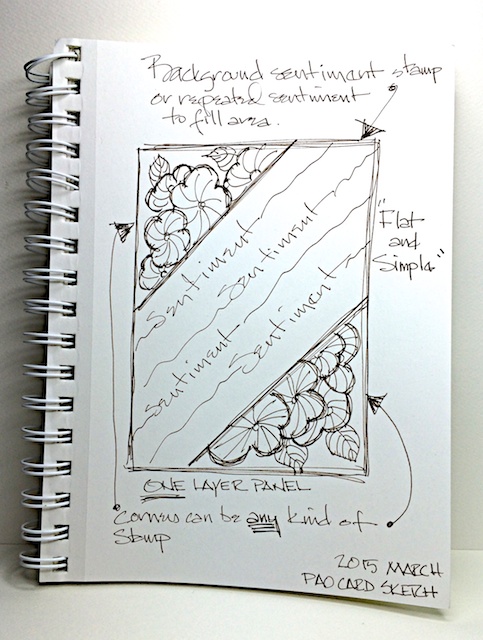 Background sentiment stamp
or repeated sentiment
to fill area.
"Flat
and
Simple"
Sentiment
Sentiment
Sentiment
Sentiment
ONE LAYER PANEL
Corners can be any kind of
Stamp
2015 MARCH
PAO CARD SKETCH